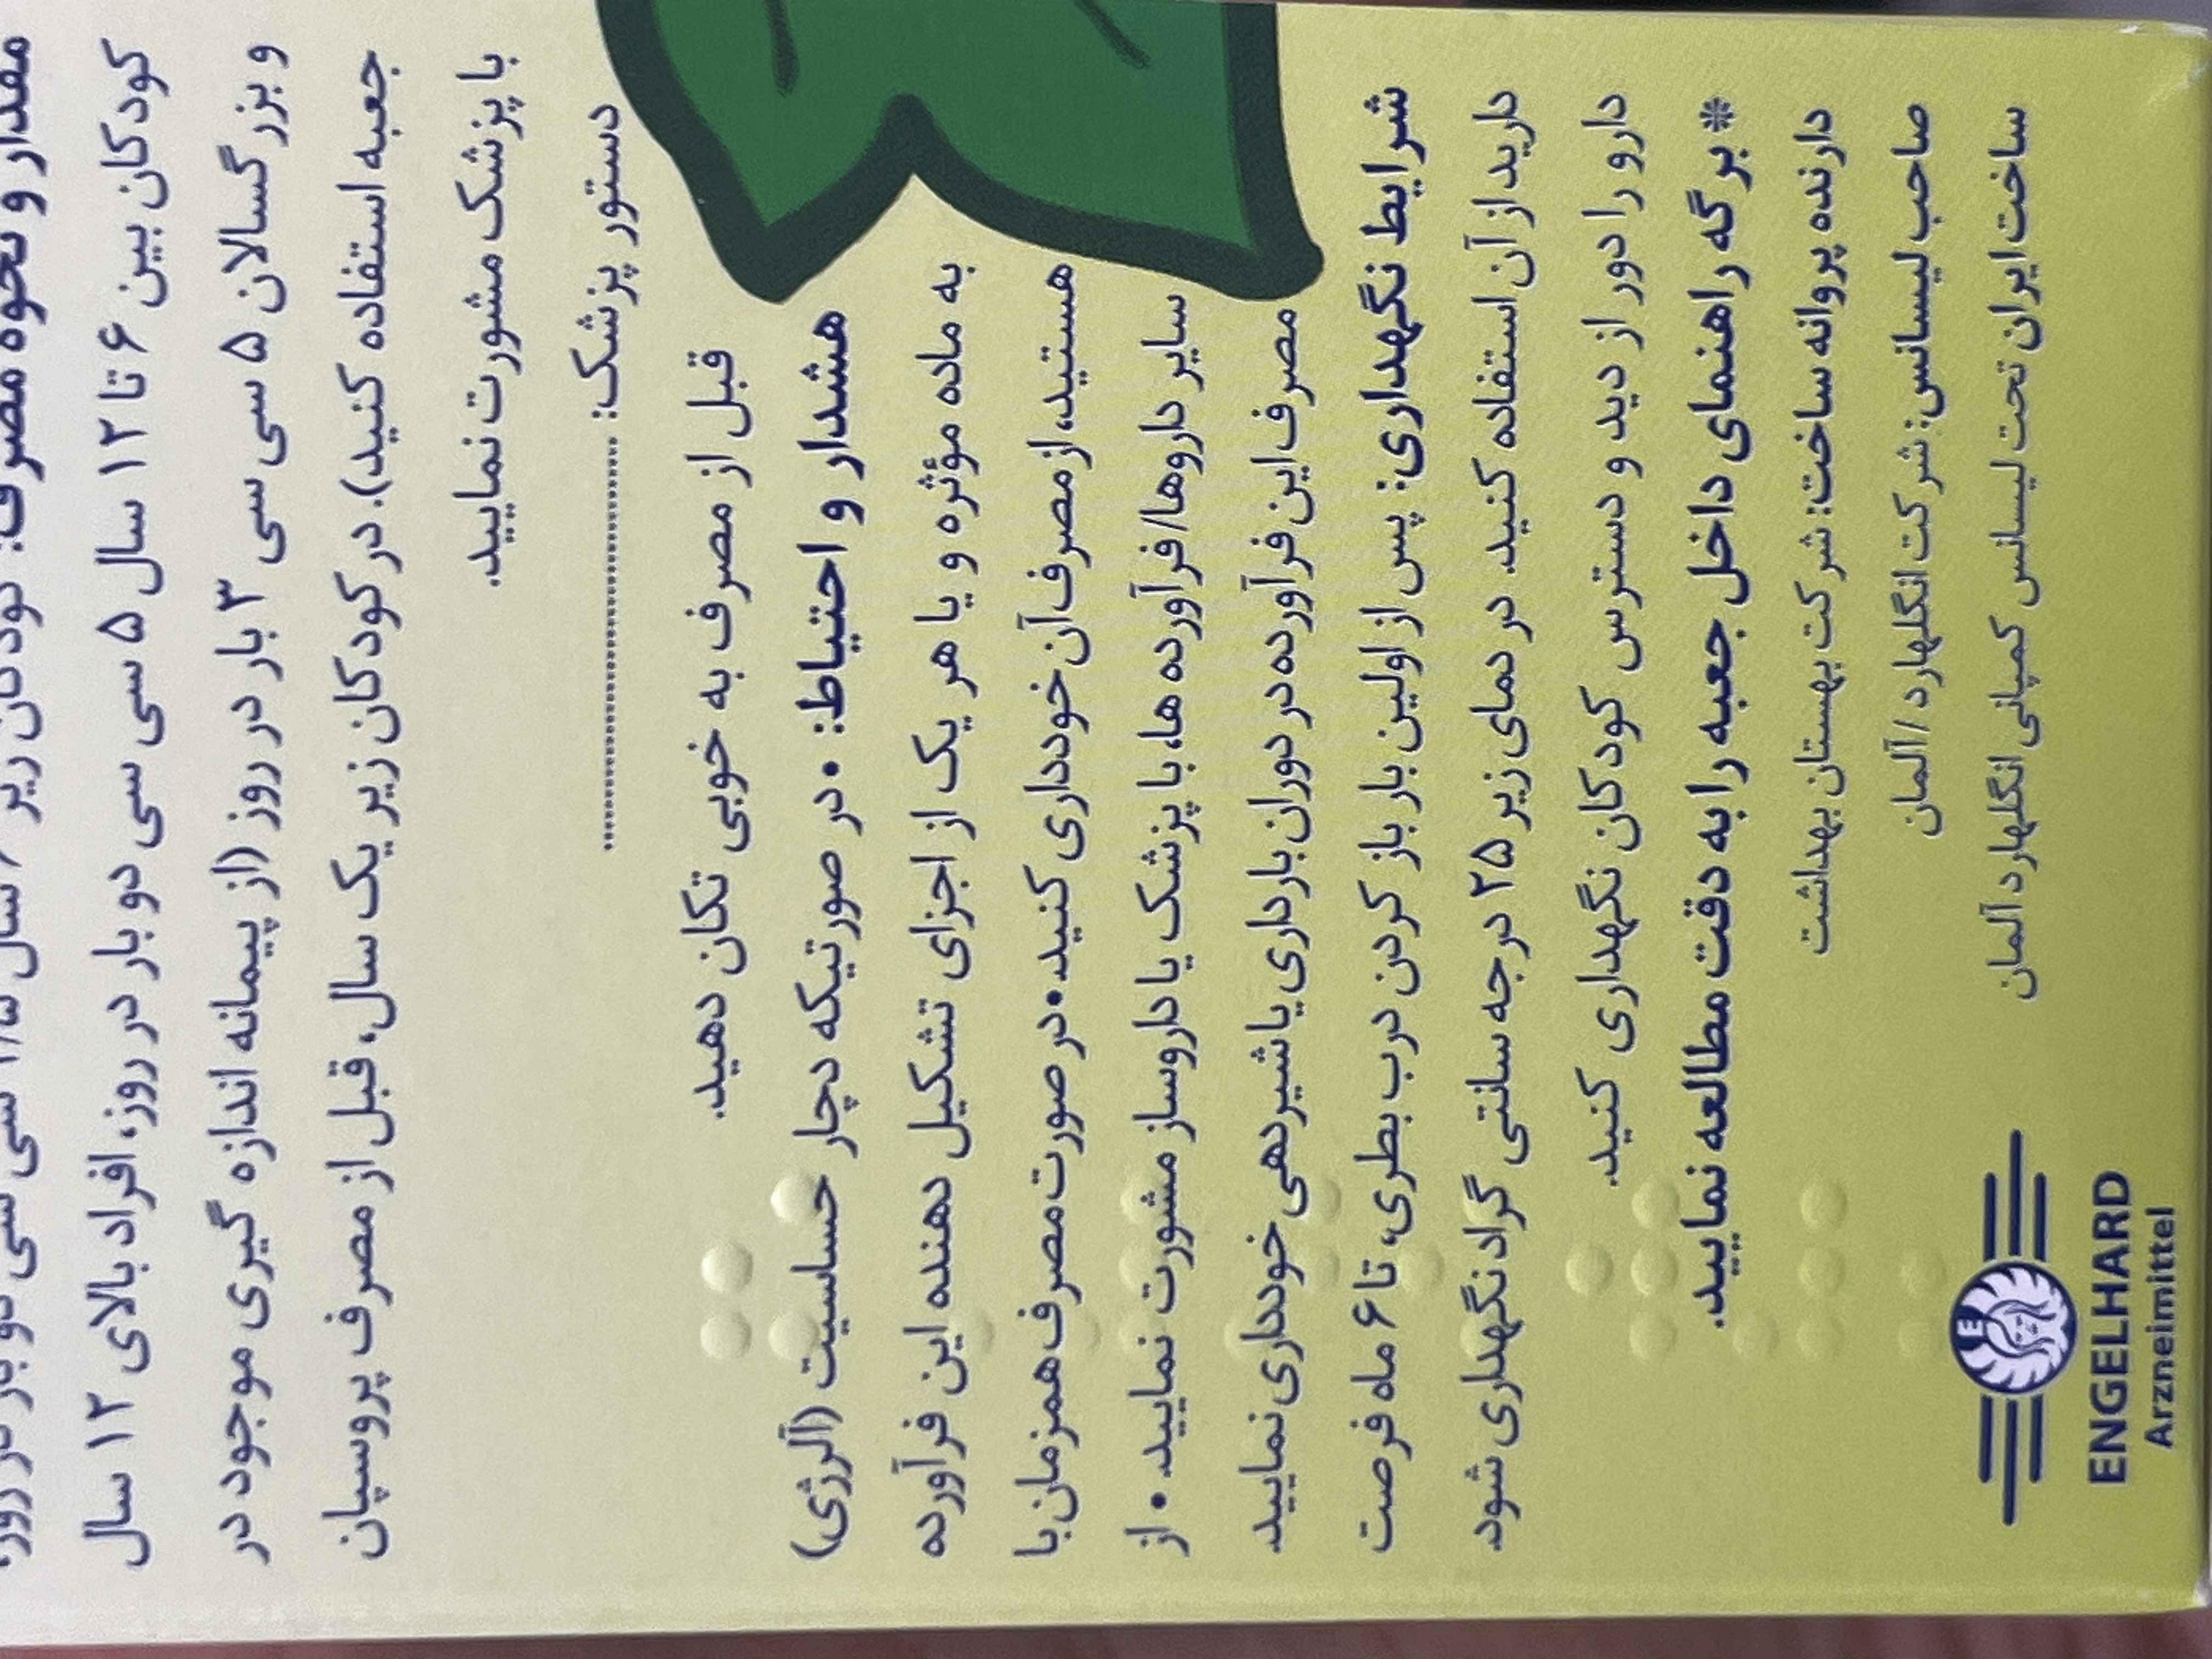 مقدار و نحوه مصرف: کودکان زیر ۶ سال ۲/۵ سی سی دو بار در روز،
کودکان بین ۶ تا ۱۲ سال ۵ سی سی دو بار در روز، افراد بالای ۱۲ سال
و بزرگسالان ۵ سی سی ۳ بار در روز (از پیمانه اندازه گیری موجود در
جعبه استفاده کنید). در کودکان زیر یک سال، قبل از مصرف پروسپان
با پزشک مشورت نمایید.
دستور پزشک: ........................................
قبل از مصرف به خوبی تکان دهید.
هشدار و احتیاط: • در صورتیکه دچار حساسیت (آلرژی)
به ماده مؤثره و یا هر یک از اجزای تشکیل دهنده این فرآورده
هستید، از مصرف آن خودداری کنید. • در صورت مصرف همزمان با
سایر داروها/فرآورده ها، با پزشک یا داروساز مشورت نمایید. • از
مصرف این فرآورده در دوران بارداری یا شیردهی خودداری نمایید.
شرایط نگهداری: پس از اولین بار باز کردن درب بطری، تا ۶ ماه فرصت
دارید از آن استفاده کنید. در دمای زیر ۲۵ درجه سانتی گراد نگهداری شود.
دارو را دور از دید و دسترس کودکان نگهداری کنید.
❊ برگه راهنمای داخل جعبه را به دقت مطالعه نمایید.
دارنده پروانه ساخت: شرکت بهستان بهداشت
صاحب لیسانس: شرکت انگلهارد / آلمان
ساخت ایران تحت لیسانس کمپانی انگلهارد آلمان
E
ENGELHARD
Arzneimittel